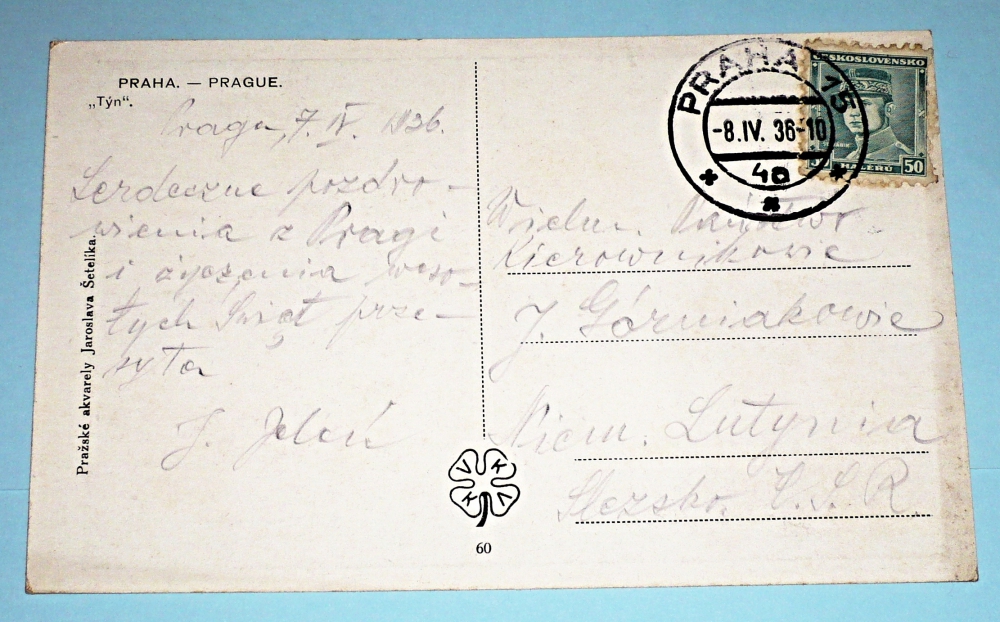 PRAHA. — PRAGUE.
„Týn“.
Praga, 7. IV. 1936.
Serdeczne pozdro-
wienia z Pragi
i życzenia weso-
łych Świąt prze-
syła
J. Jeleń
Pražské akvarely Jaroslava Šetelíka.
V K V K
60
PRAHA 15
-8.IV. 36-10
4a
ČESKOSLOVENSKO
HALÉŘŮ 50
Wielm. Państwo
Kierownikowie
J. Górniakowie
Niem. Lutynia
Slezsko. Č.S.R.